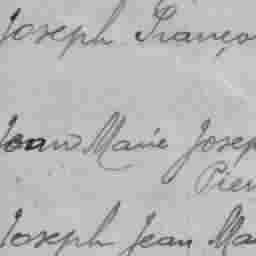 Joseph Franço
Jean Marie Josep
Pier
Joseph Jean Ma